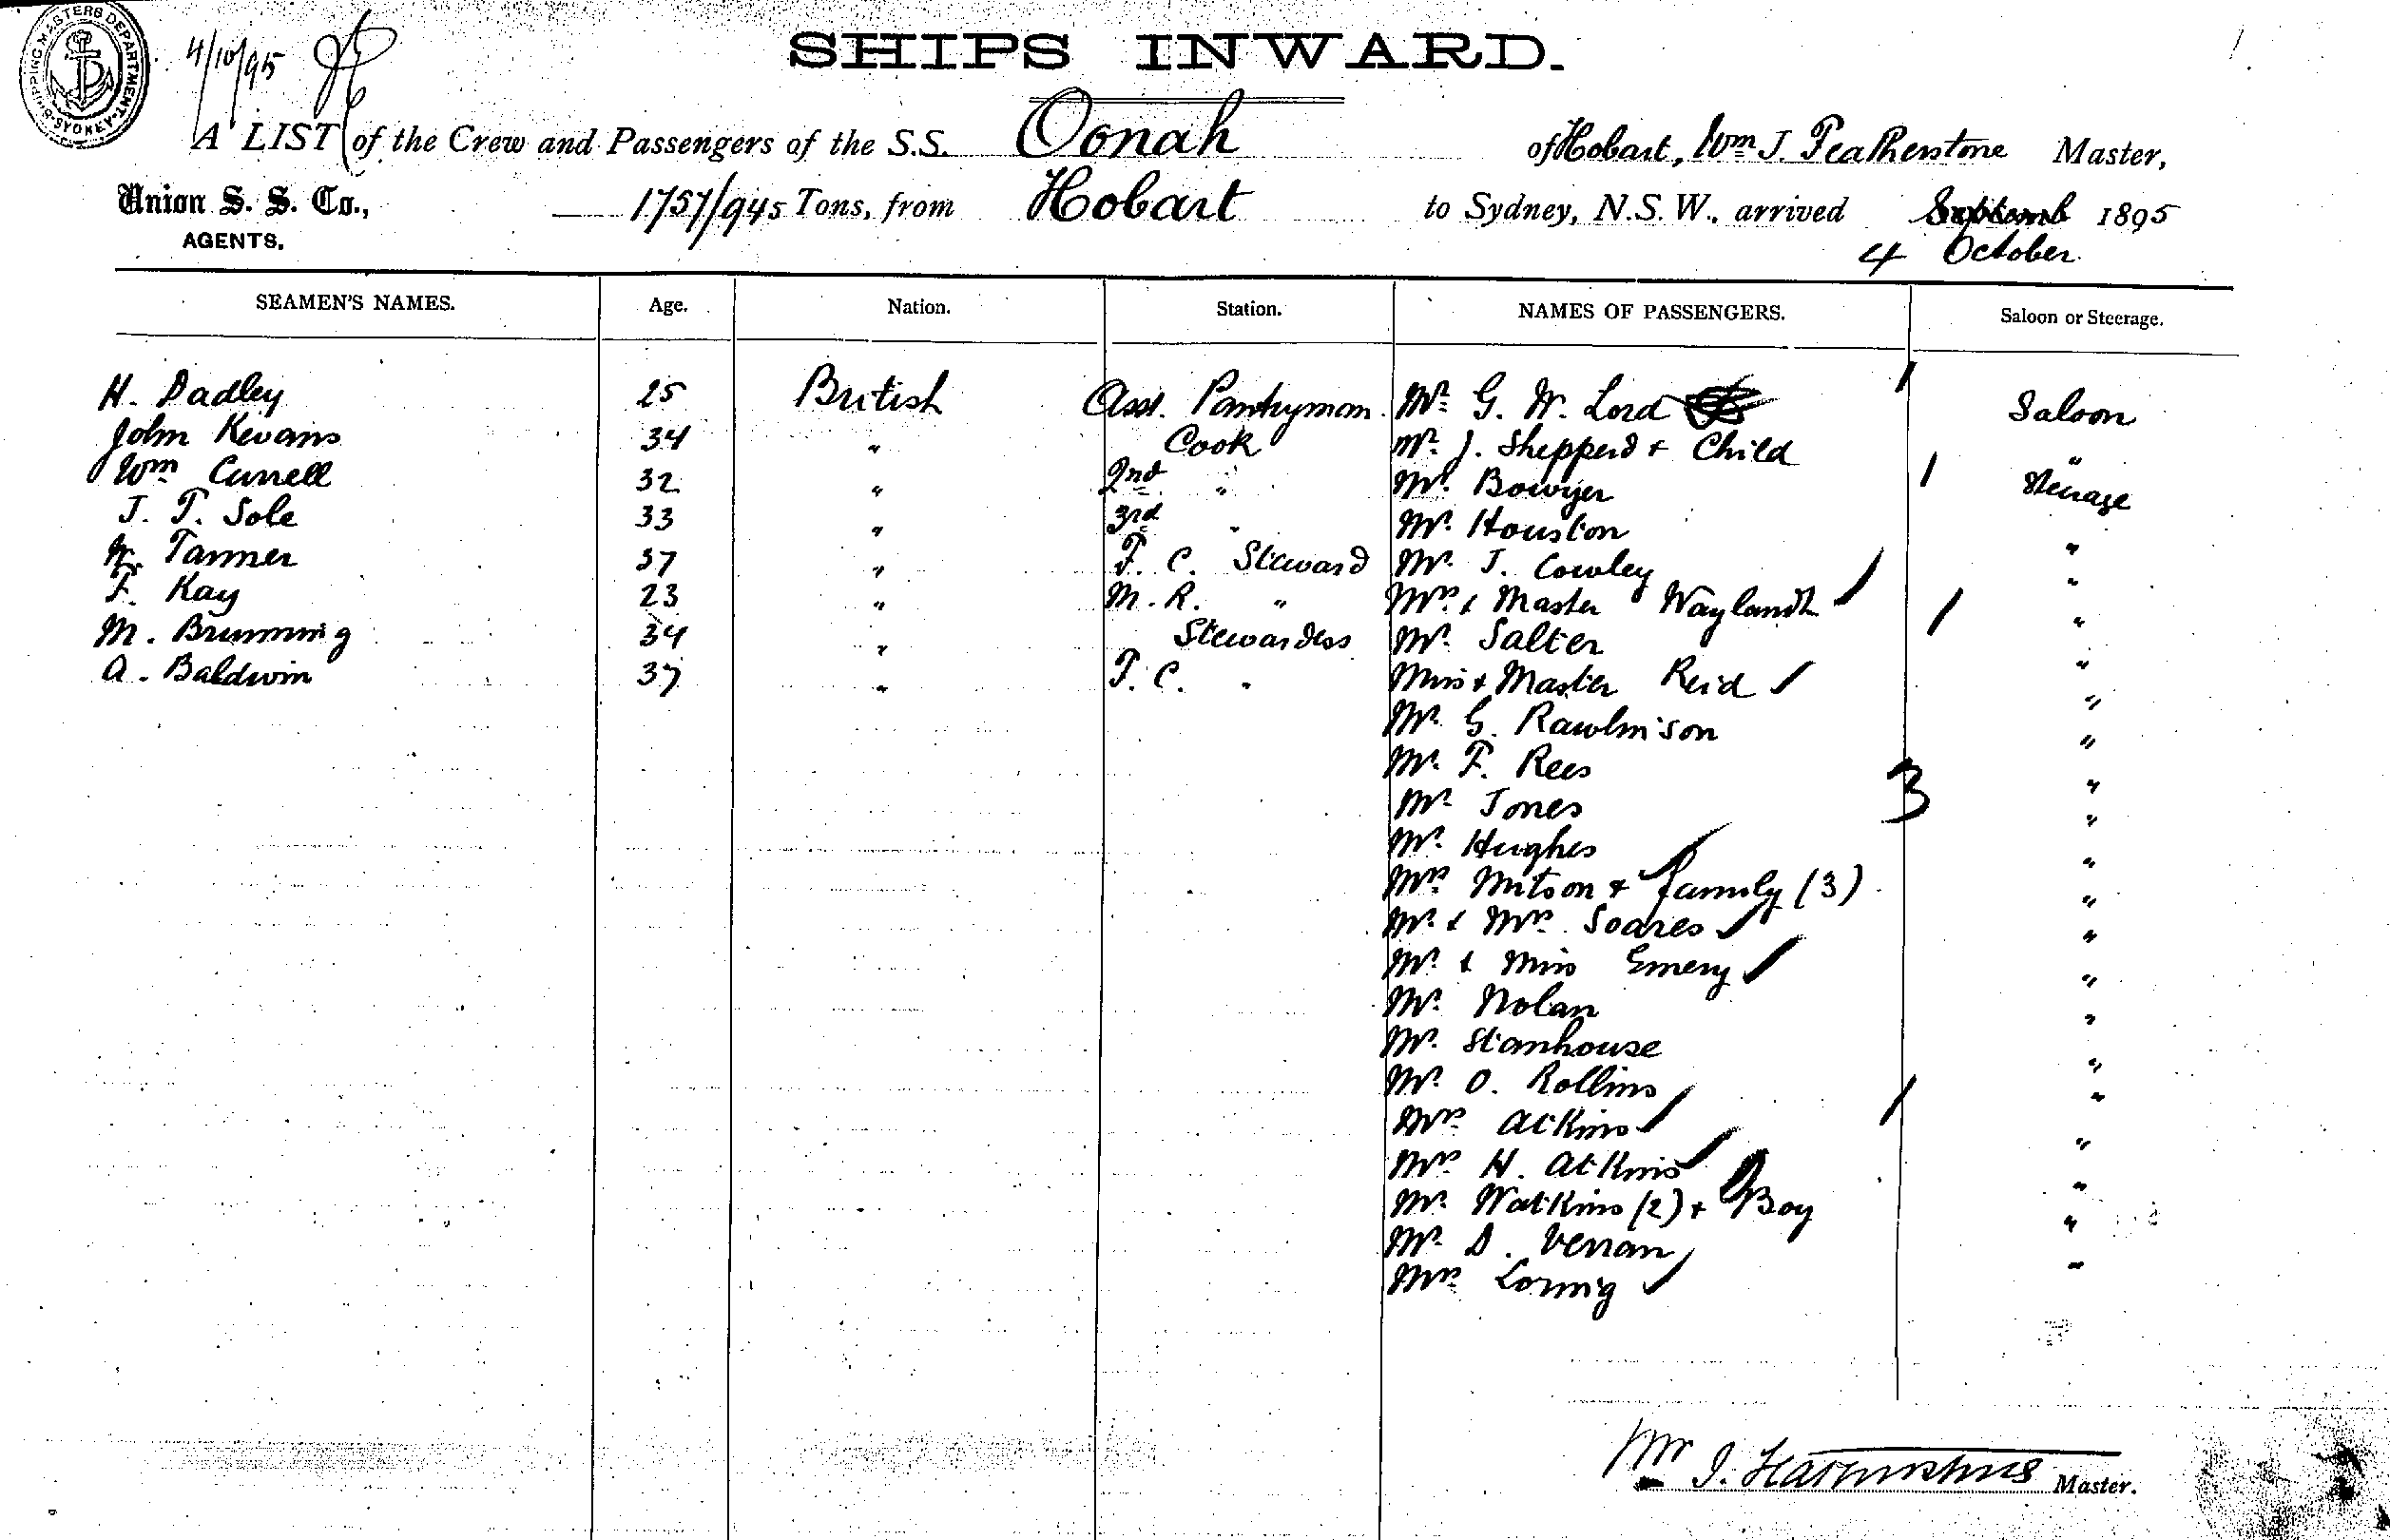 SHIPPING MASTERS DEPARTMENT SYDNEY
4/10/95
SHIPS INWARD.
A LIST of the Crew and Passengers of the S.S. Oonah of Hobart, Wm J. Featherstone Master,
Union S. S. Co., AGENTS.
1757/945 Tons, from Hobart to Sydney, N.S.W., arrived 1895
4 October
SEAMEN'S NAMES. Age. Nation. Station. NAMES OF PASSENGERS. Saloon or Steerage.
H. Dadley 25 British Asst. Pantryman Mr. G. W. Lord 1 Saloon
John Kevans 34 " Cook Mr. J. Shepperd & Child "
Wm Currell 32 " 2nd " Mr. Bowyer 1 Steerage
J. T. Sole 33 " 3rd " Mr. Houston "
W. Tanner 37 " F. C. Steward Mr. J. Cowley "
F. Kay 23 " M. R. " Mrs. & Master Waylandt "
M. Brunning 34 " Stewardess Mr. Salter 1 "
A. Baldwin 37 " F. C. " Miss & Master Reid "
Mr. G. Rawlinson "
Mr. F. Rees "
Mr. Jones 3 "
Mr. Hughes "
Mrs. Mitson & family (3) "
Mr. & Mrs. Soares "
Mr. & Miss Emery "
Mr. Nolan "
Mr. Stanhouse "
Mr. O. Rollins "
Mrs. Atkins 1 "
Mrs. H. Atkins "
Mr. Watkins (2) & Boy "
Mr. D. Verran "
Mrs. Loring "
Wm J. Featherstone Master.